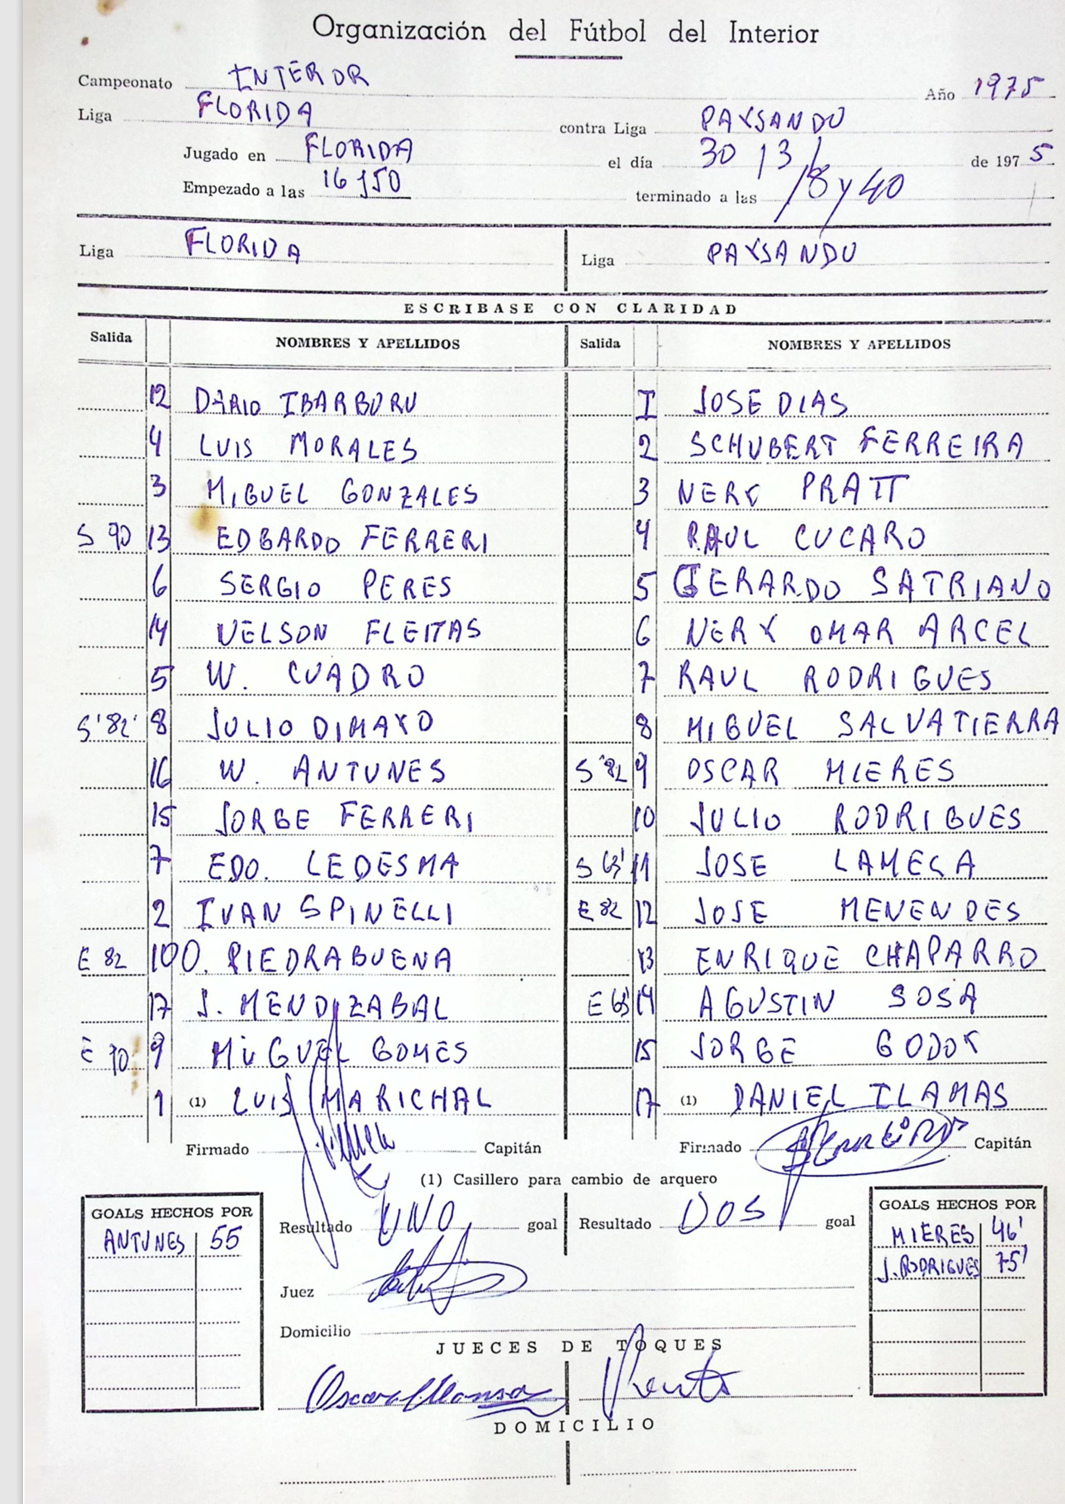 Organización del Fútbol del Interior
Campeonato INTERIOR Año 1975
Liga FLORIDA contra Liga PAYSANDU
Jugado en FLORIDA el día 30/3/ de 1975
Empezado a las 16 y 50 terminado a las 18 y 40
Liga FLORIDA Liga PAYSANDU
ESCRIBASE CON CLARIDAD
Salida NOMBRES Y APELLIDOS Salida NOMBRES Y APELLIDOS
12 DARIO IBARBURU I JOSE DIAS
4 LUIS MORALES 2 SCHUBERT FERREIRA
3 MIGUEL GONZALES 3 NERY PRATT
S 90 13 EDGARDO FERRERI 4 RAUL CUCARO
6 SERGIO PERES 5 GERARDO SATRIANO
14 NELSON FLEITAS 6 NERY OMAR ARCEL
5 W. CUADRO 7 RAUL RODRIGUES
S'82' 8 JULIO DIMAYO 8 MIGUEL SALVATIERRA
16 W. ANTUNES S'82 9 OSCAR MIERES
15 JORGE FERRERI 10 JULIO RODRIGUES
7 EDO. LEDESMA S 63' 11 JOSE LAMECA
2 IVAN SPINELLI E 82 12 JOSE MENENDES
E 82 10 O. PIEDRABUENA 13 ENRIQUE CHAPARRO
17 J. MENDIZABAL E 63' 14 AGUSTIN SOSA
E 90' 9 MIGUEL GOMES 15 JORGE GODOY
1 (1) LUIS MARICHAL 17 (1) DANIEL LLAMAS
Firmado Capitán Firmado Capitán
(1) Casillero para cambio de arquero
GOALS HECHOS POR Resultado UNO goal Resultado DOS goal GOALS HECHOS POR
ANTUNES 55 MIERES 46'
J. RODRIGUES 75'
Juez
Domicilio
JUECES DE TOQUES
DOMICILIO